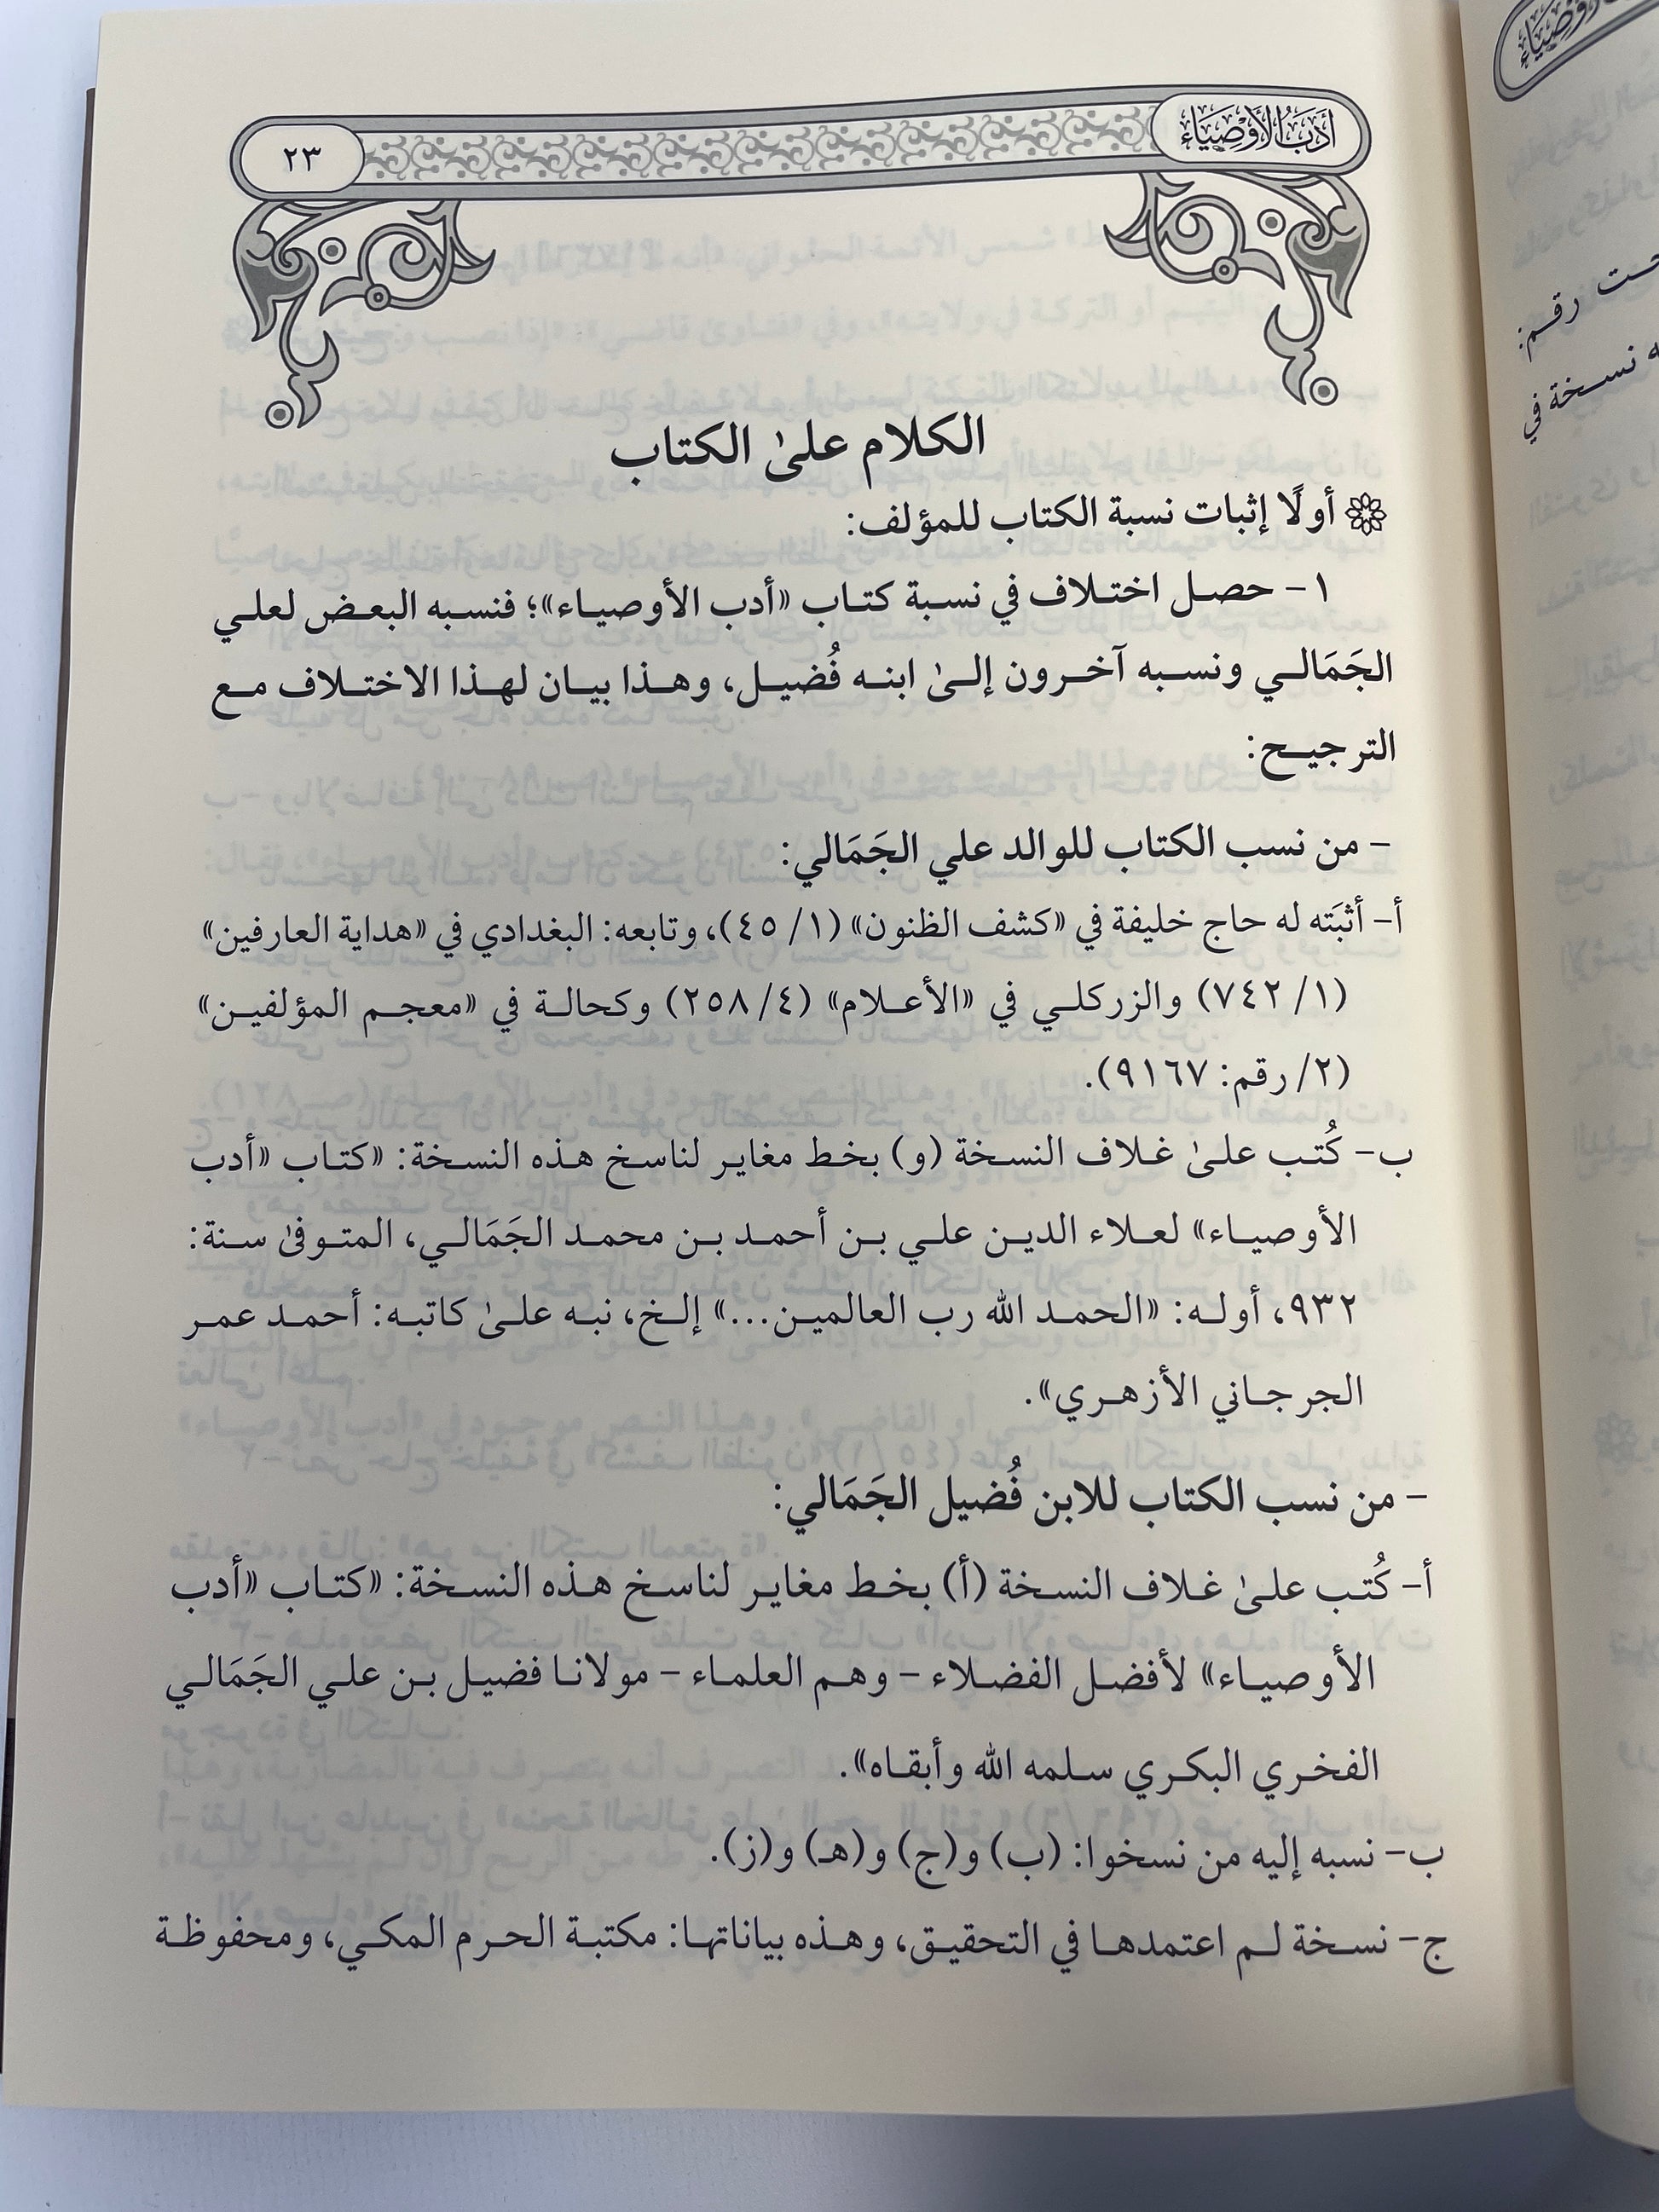 أَدَبُ الأَوْصِيَاء
٢٣
الكلام علىٰ الكتاب
أولًا إثبات نسبة الكتاب للمؤلف:
١- حصل اختلاف في نسبة كتاب «أدب الأوصياء»؛ فنسبه البعض لعلي
الجَمَالي ونسبه آخرون إلىٰ ابنه فُضيل، وهذا بيان لهذا الاختلاف مع
الترجيح:
- من نسب الكتاب للوالد علي الجَمَالي:
أ- أثبَته له حاج خليفة في «كشف الظنون» (١/ ٤٥)، وتابعه: البغدادي في «هداية العارفين»
(١/ ٧٤٢) والزركلي في «الأعلام» (٤/ ٢٥٨) وكحالة في «معجم المؤلفين»
(٢/ رقم: ٩١٦٧).
ب- كُتب علىٰ غلاف النسخة (و) بخط مغاير لناسخ هذه النسخة: «كتاب «أدب
الأوصياء» لعلاء الدين علي بن أحمد بن محمد الجَمَالي، المتوفىٰ سنة:
٩٣٢، أوله: «الحمد الله رب العالمين...» إلخ، نبه علىٰ كاتبه: أحمد عمر
الجرجاني الأزهري».
- من نسب الكتاب للابن فُضيل الجَمَالي:
أ- كُتب علىٰ غلاف النسخة (أ) بخط مغاير لناسخ هذه النسخة: «كتاب «أدب
الأوصياء» لأفضل الفضلاء - وهم العلماء - مولانا فضيل بن علي الجَمَالي
الفخري البكري سلمه الله وأبقاه».
ب- نسبه إليه من نسخوا: (ب) و(ج) و(هـ) و(ز).
ج- نسخة لم اعتمدها في التحقيق، وهذه بياناتها: مكتبة الحرم المكي، ومحفوظة
رقم:
نسخة في